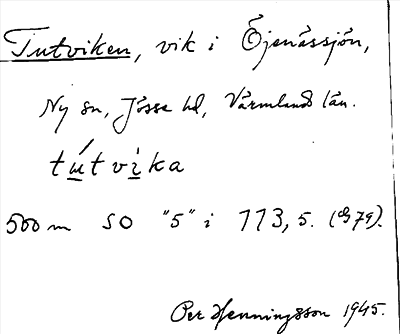 Tutviken, vik i Öjenässjön,
Ny sn, Jösse hd, Värmlands län.
tútvìka
500 m SO "5" i 113, 5. (G79).
Per Henningsson 1945.